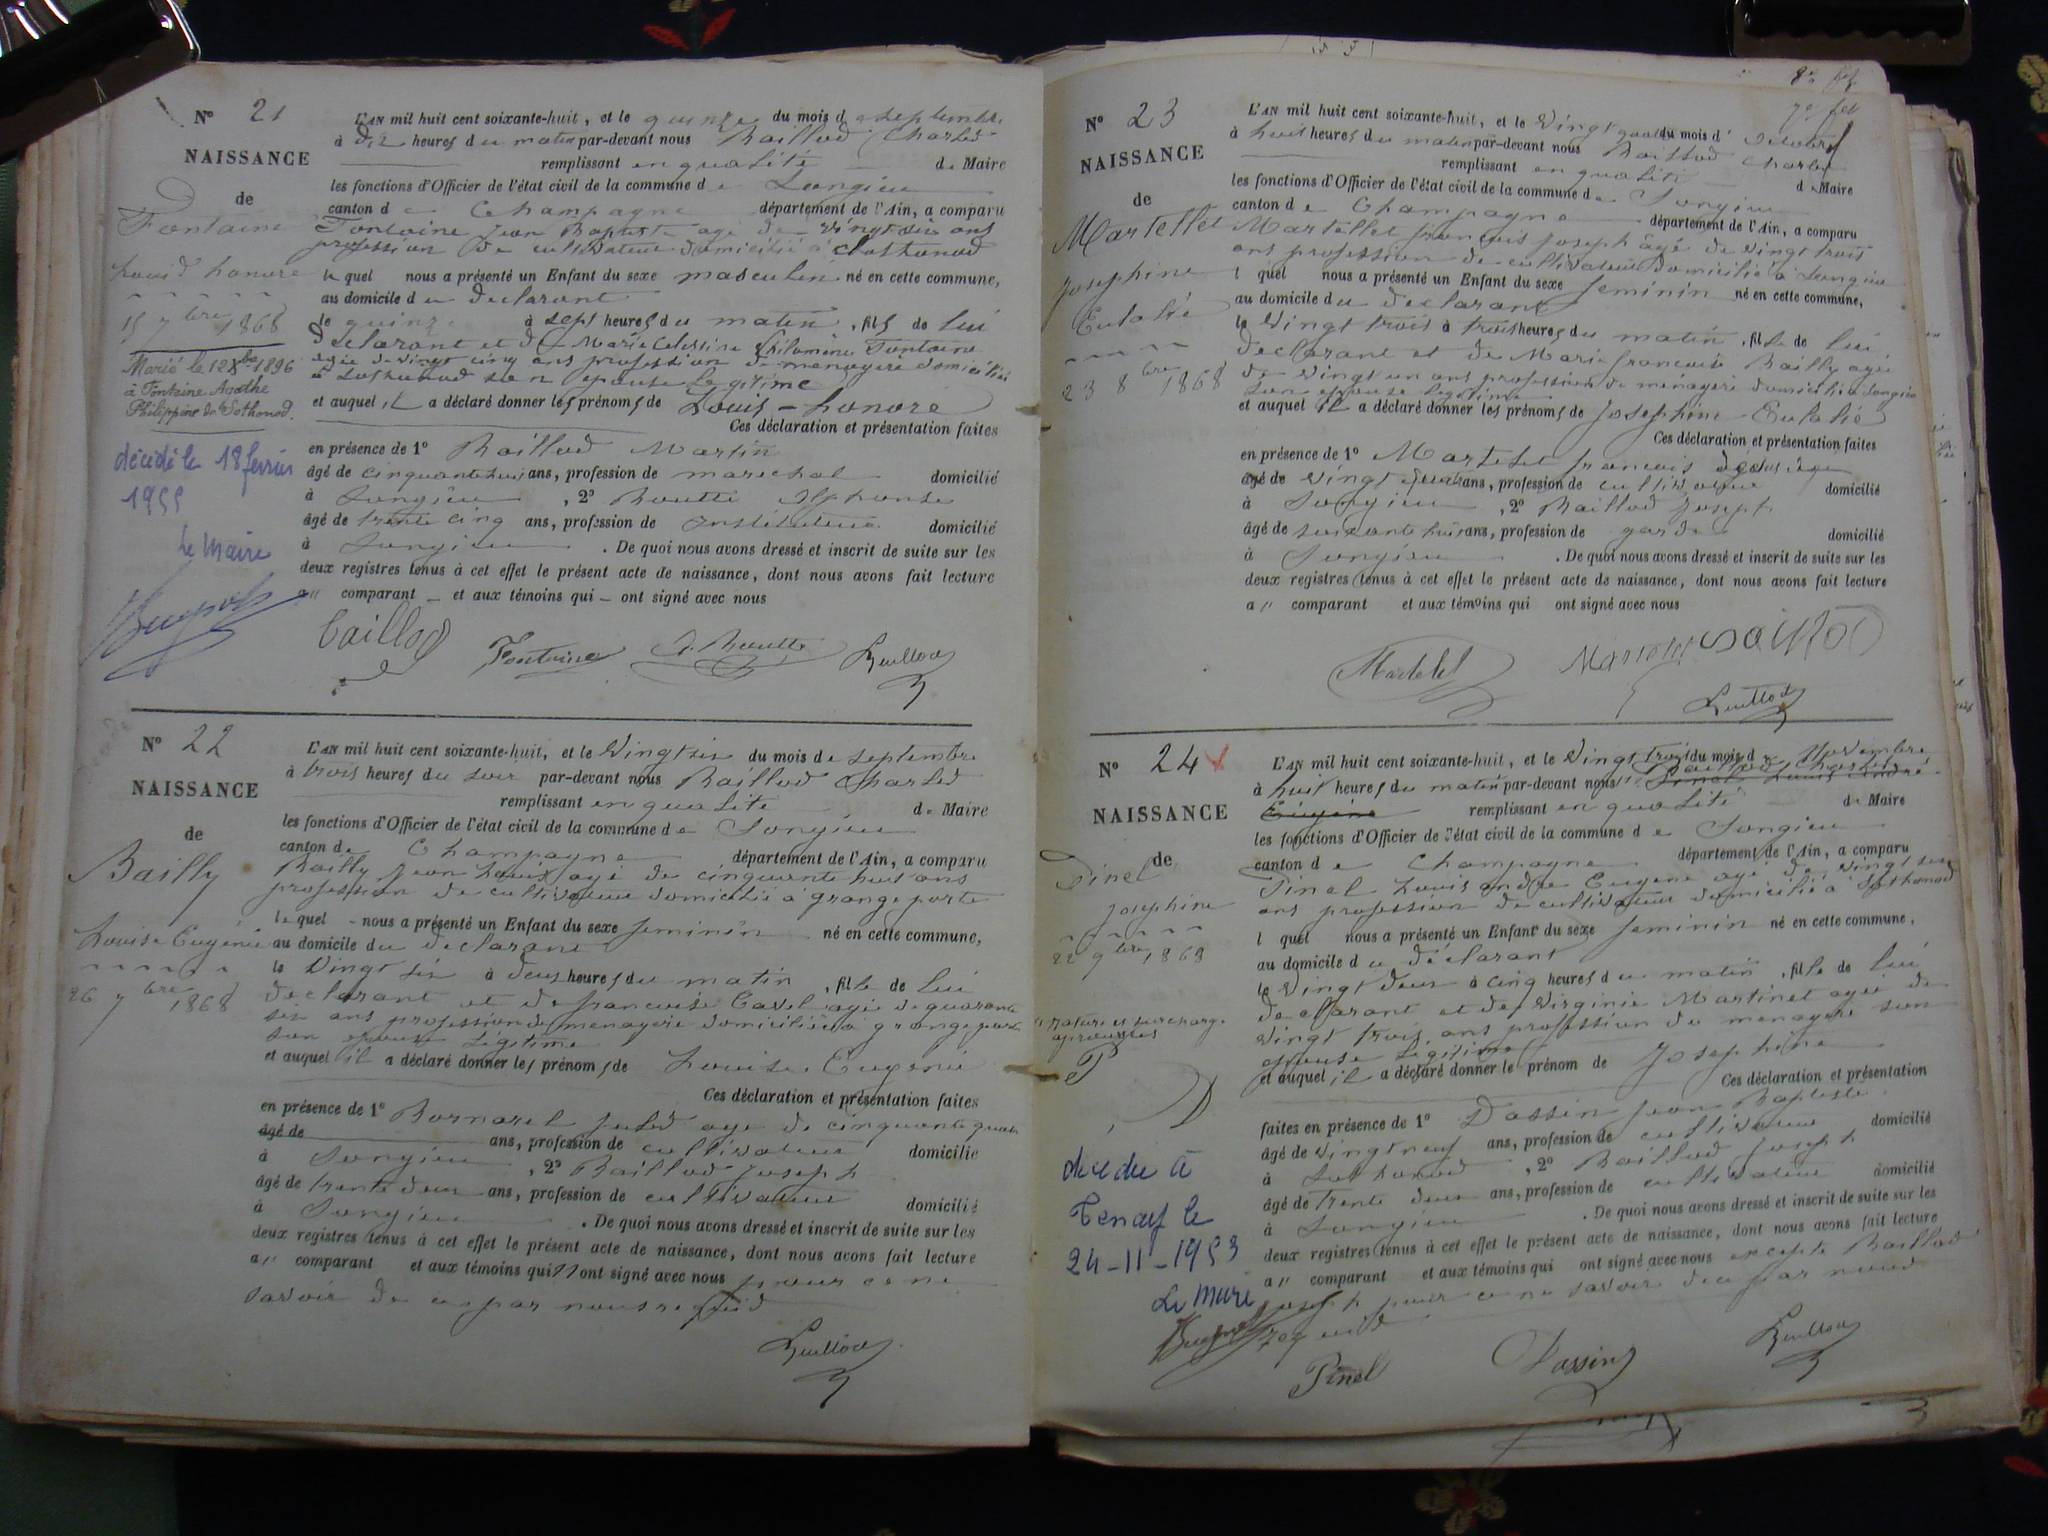 N° 21
NAISSANCE
de
Fontaine
Louis honore
15 7bre 1868
Marié le 12 Xbre 1896
à Fontaine Agathe
Philippine de Sothonod.
décédé le 18 février
1955
Le Maire
L'AN mil huit cent soixante-huit, et le quinze du mois de septembre
à dix heures du matin par-devant nous Baillod Charles
remplissant en qualité de Maire
les fonctions d'Officier de l'état civil de la commune de Songieu
canton de Champagne département de l'Ain, a comparu
Fontaine Jean Baptiste agé de vingt six ans
profession de cultivateur domicilié a Sothonod
le quel nous a présenté un Enfant du sexe masculin né en cette commune,
au domicile du declarant
le quinze à sept heures du matin, fils de lui
declarant et de Marie Celestine Philomène Fontaine
agée de vingt cinq ans profession de menagere domiciliée
a Sothonod son epouse Legitime
et auquel il a déclaré donner les prénoms de Louis - honore
Ces déclaration et présentation faites
en présence de 1° Baillod Martin
âgé de cinquante huit ans, profession de marechal domicilié
à Songieu, 2° Routte Alphonse
âgé de trente cinq ans, profession de instituteur domicilié
à Songieu. De quoi nous avons dressé et inscrit de suite sur les
deux registres tenus à cet effet le présent acte de naissance, dont nous avons fait lecture
au comparant et aux témoins qui ont signé avec nous
Baillod Fontaine A. Routte Baillod
N° 22
NAISSANCE
de
Bailly
Louise Eugénie
26 7bre 1868
L'AN mil huit cent soixante-huit, et le vingt six du mois de septembre
à trois heures du soir par-devant nous Baillod Charles
remplissant en qualité de Maire
les fonctions d'Officier de l'état civil de la commune de Songieu
canton de Champagne département de l'Ain, a comparu
Bailly Jean Louis agé de cinquante huit ans
profession de cultivateur domicilié a grange porte
le quel nous a présenté un Enfant du sexe feminin né en cette commune,
au domicile du declarant
le vingt six à deux heures du matin, fille de lui
declarant et de francoise Cavel agée de quarante
six ans profession de menagere domiciliée a grange porte
son epouse Legitime
et auquel il a déclaré donner les prénoms de Louise Eugenie
Ces déclaration et présentation faites
en présence de 1° Bornarel Jules age de cinquante quatre
âgé de ans, profession de cultivateur domicilié
à Songieu, 2° Baillod Joseph
âgé de trente deux ans, profession de cultivateur domicilié
à Songieu. De quoi nous avons dressé et inscrit de suite sur les
deux registres tenus à cet effet le présent acte de naissance, dont nous avons fait lecture
au comparant et aux témoins qui n'ont signé avec nous pour ce ne
savoir de ce par nous requis
Baillod
N° 23
NAISSANCE
de
Martellet
Josephine
Eulalie
23 8bre 1868
L'AN mil huit cent soixante-huit, et le vingt quatre du mois d'octobre
à huit heures du matin par-devant nous Baillod Charles
remplissant en qualité de Maire
les fonctions d'Officier de l'état civil de la commune de Songieu
canton de Champagne département de l'Ain, a comparu
Martellet françois Joseph agé de vingt trois
ans profession de cultivateur domicilié a Songieu
l quel nous a présenté un Enfant du sexe feminin né en cette commune,
au domicile du declarant
le vingt trois à trois heures du matin, fille de lui
declarant et de Marie francoise Bailly agée
de vingt un ans profession de menagere domiciliée a Songieu
son epouse legitime
et auquel il a déclaré donner les prénoms de Josephine Eulalie
Ces déclaration et présentation faites
en présence de 1° Martelet francois
âgé de vingt quatre ans, profession de cultivateur domicilié
à Songieu, 2° Baillod Joseph
âgé de soixante huit ans, profession de garde domicilié
à Songieu. De quoi nous avons dressé et inscrit de suite sur les
deux registres tenus à cet effet le présent acte de naissance, dont nous avons fait lecture
au comparant et aux témoins qui ont signé avec nous
Martelet Baillod
N° 24
NAISSANCE
de
Pinel
Josephine
22 9bre 1868
rature et surcharge
aprouvées
P D
décédée à
Tenay le
24-11-1953
Le Maire
L'AN mil huit cent soixante-huit, et le vingt trois du mois de Novembre
à huit heures du matin par-devant nous Baillod Charles Pinel Louis André
Eugène remplissant en qualité de Maire
les fonctions d'Officier de l'état civil de la commune de Songieu
canton de Champagne département de l'Ain, a comparu
Pinel Louis andre Eugene agé de vingt six
ans profession de cultivateur domicilié a Sothonod
l quel nous a présenté un Enfant du sexe feminin né en cette commune,
au domicile du déclarant
le vingt deux à cinq heures du matin, fille de lui
declarant et de Virginie Martinet agée de
vingt trois ans profession de menagere son
epouse Legitime
et auquel il a déclaré donner le prénom de Josephine
Ces déclaration et présentation
faites en présence de 1° Dassin Jean Baptiste
âgé de vingt neuf ans, profession de cultivateur domicilié
à Sothonod, 2° Baillod Joseph
âgé de trente deux ans, profession de cultivateur domicilié
à Songieu. De quoi nous avons dressé et inscrit de suite sur les
deux registres tenus à cet effet le présent acte de naissance, dont nous avons fait lecture
au comparant et aux témoins qui ont signé avec nous excepte Baillod
Joseph pour ce ne savoir de ce par nous
requis
Pinel Dassin Baillod